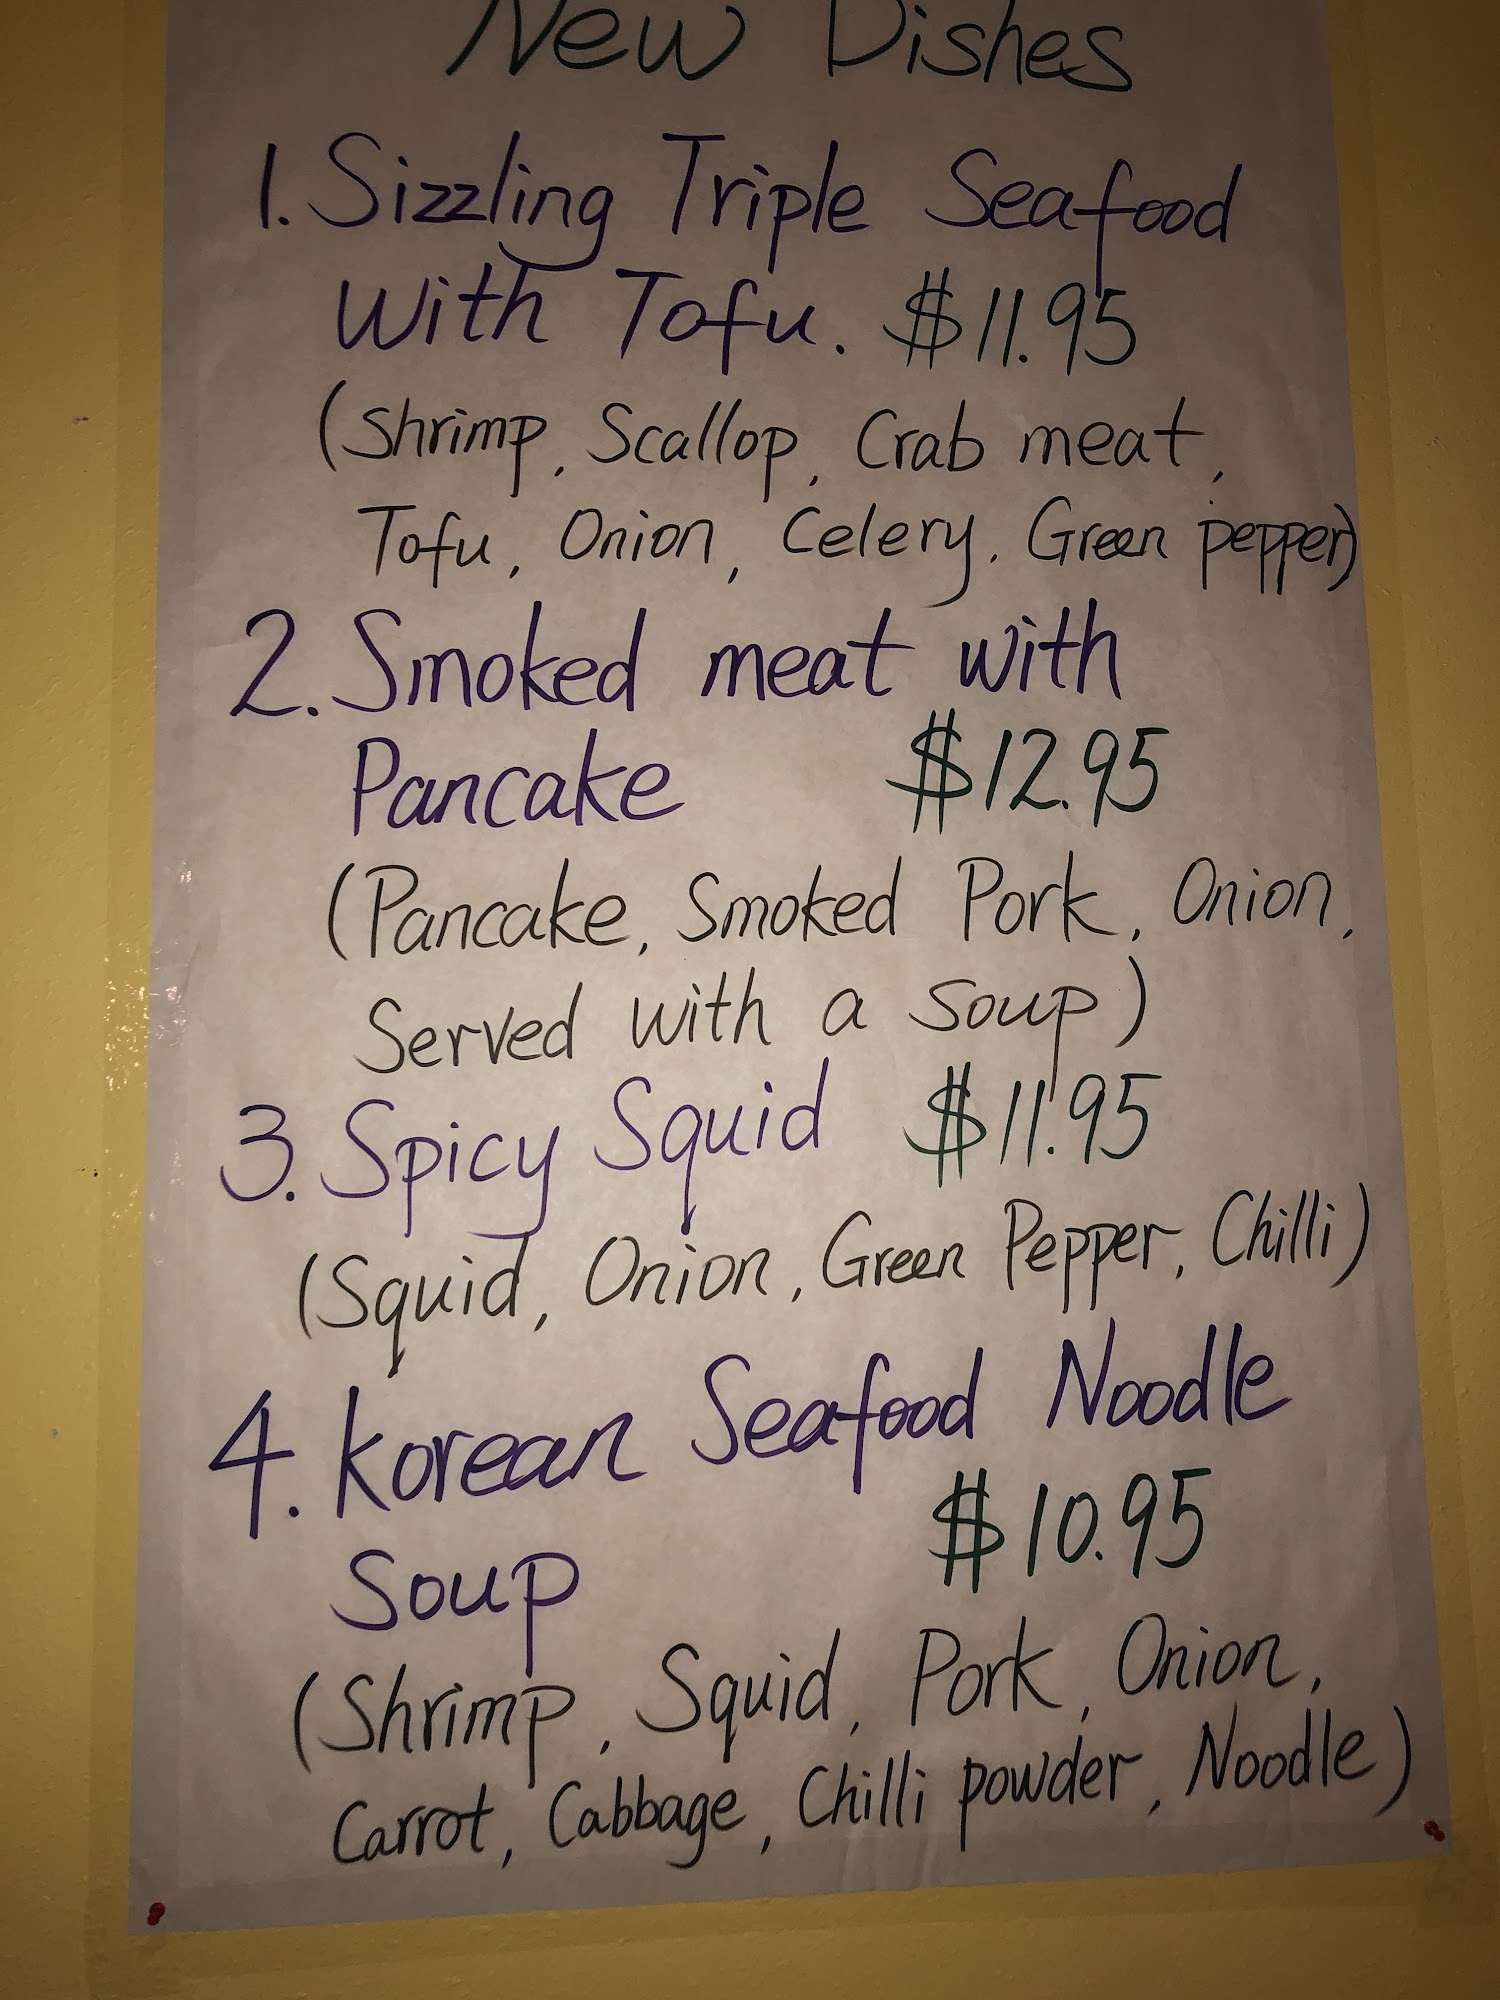 New Dishes
1. Sizzling Triple Seafood
With Tofu. $11.95
(Shrimp, Scallop, Crab meat,
Tofu, Onion, Celery, Green pepper)
2. Smoked meat with
Pancake $12.95
(Pancake, Smoked Pork, Onion,
Served with a soup)
3. Spicy Squid $11.95
(Squid, Onion, Green Pepper, Chilli)
4. Korean Seafood Noodle
Soup $10.95
(Shrimp, Squid, Pork, Onion,
Carrot, Cabbage, Chilli powder, Noodle)